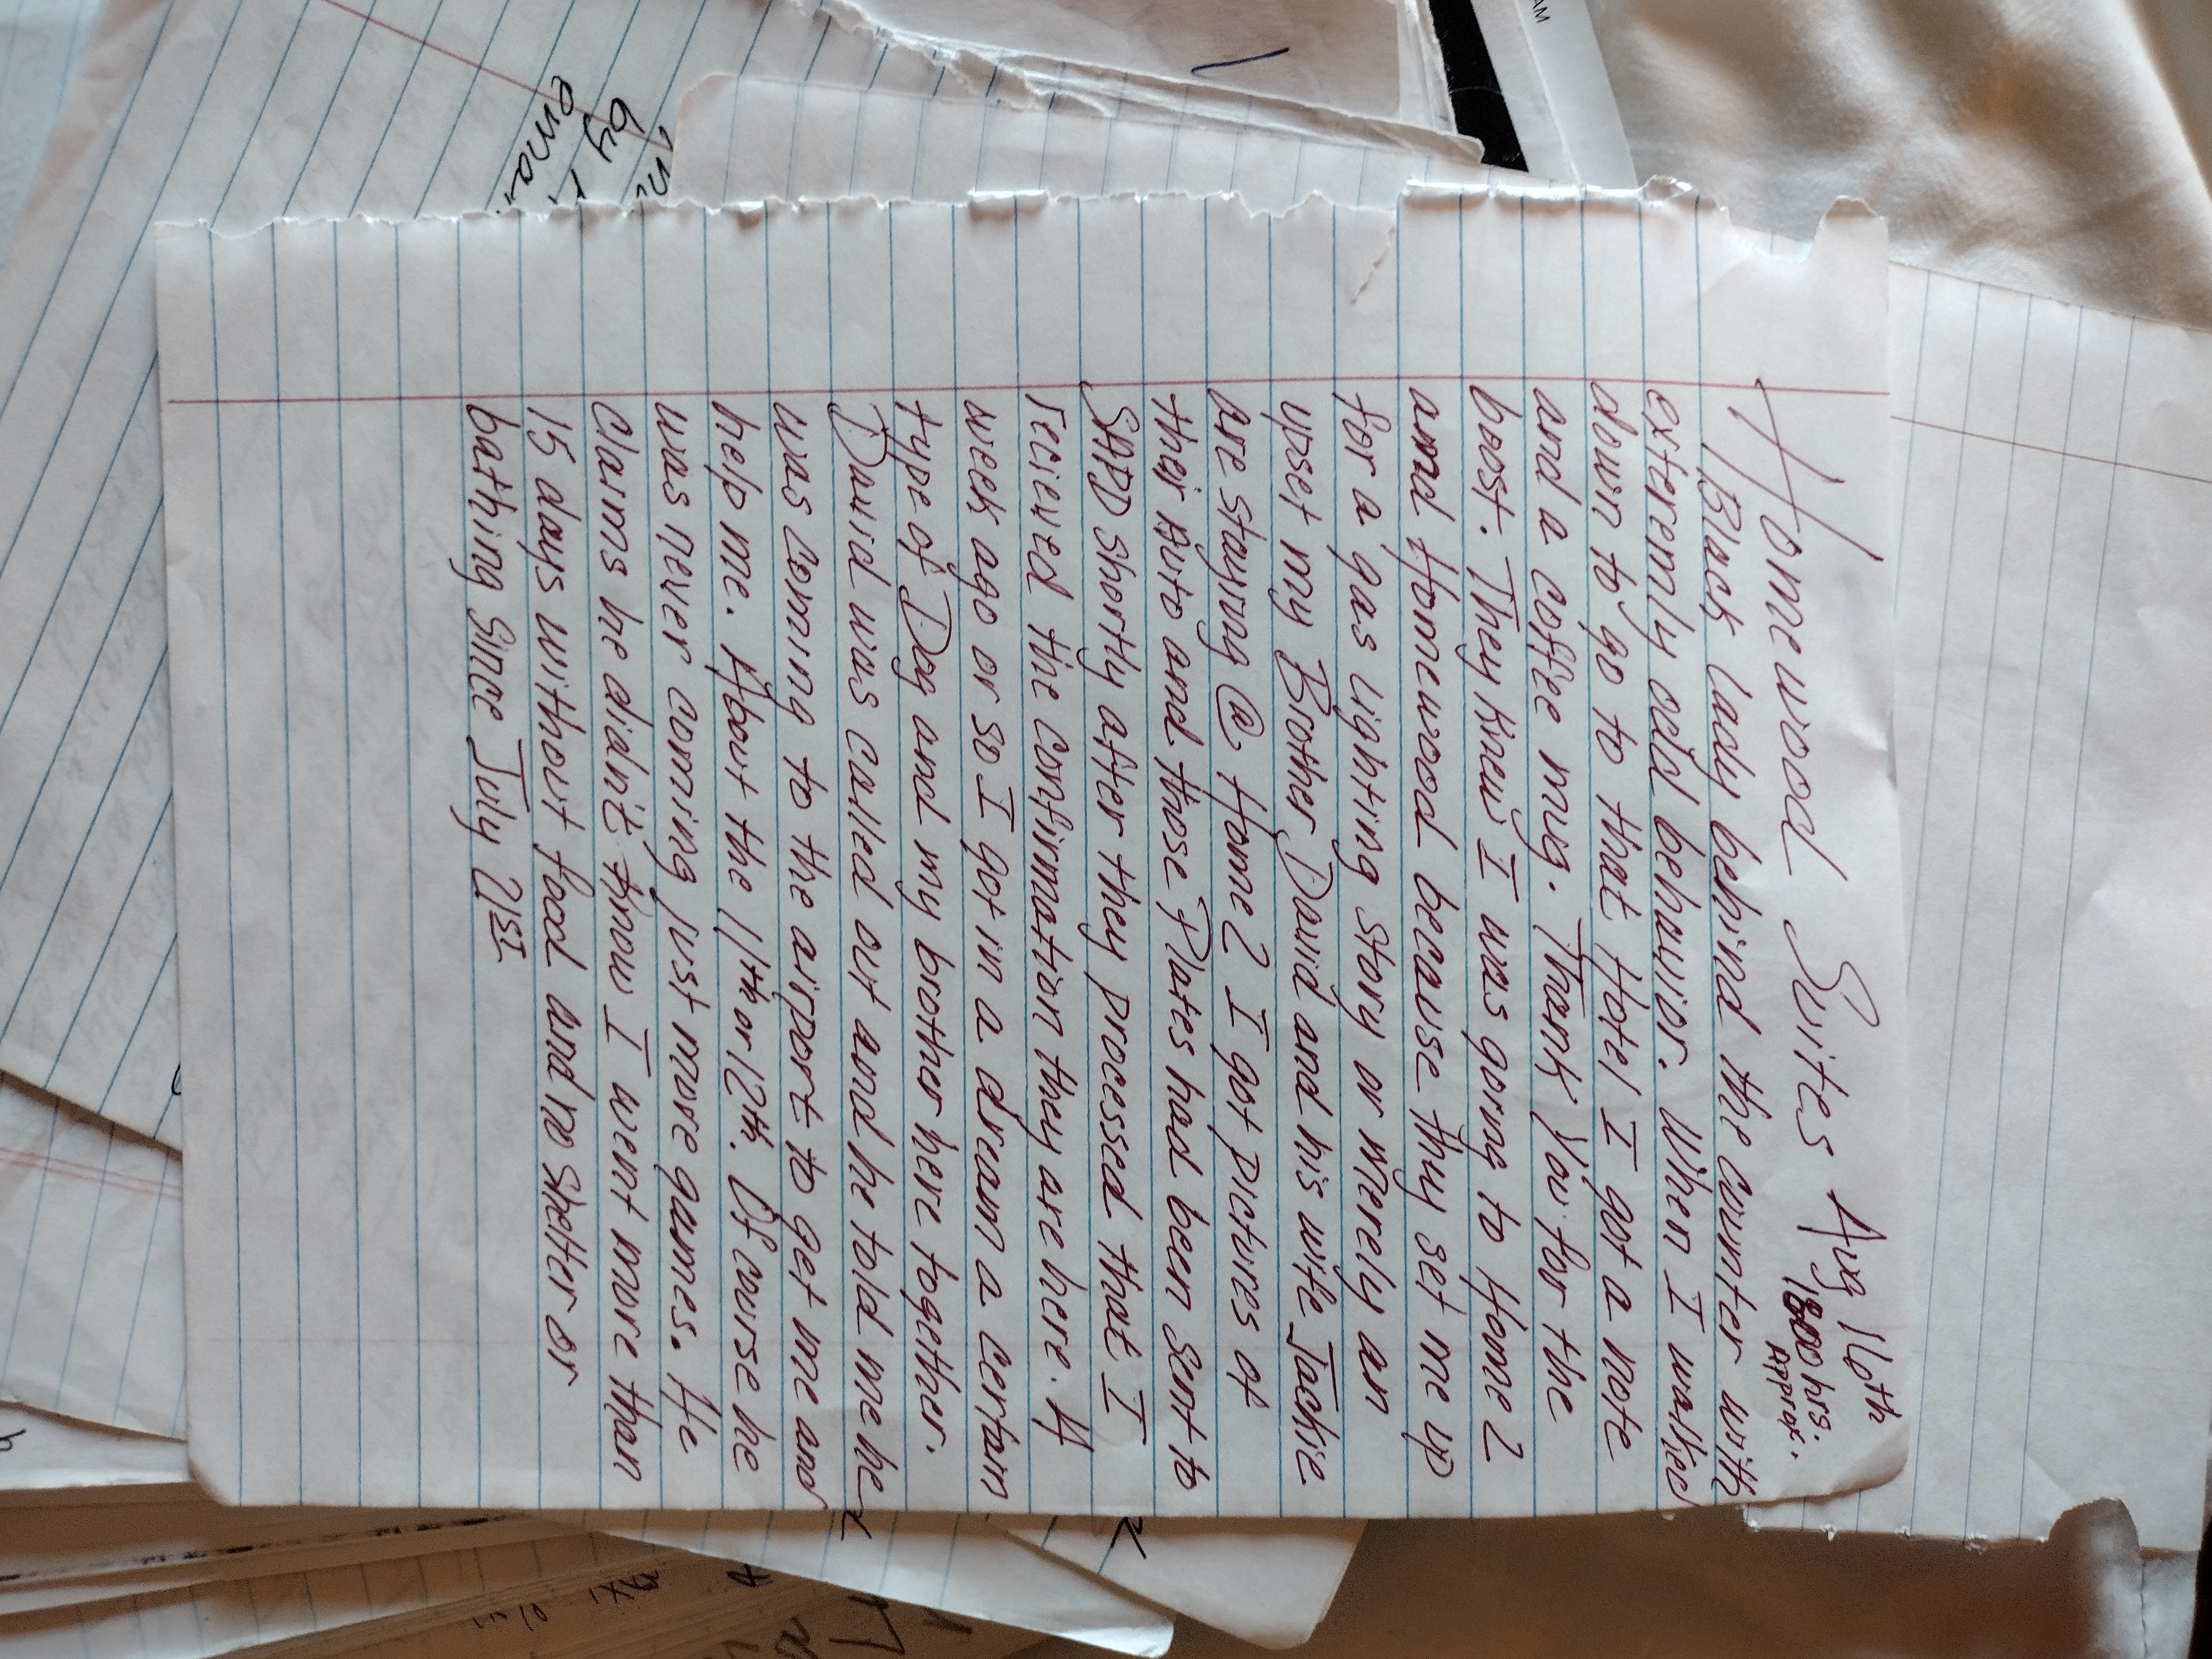 Homewood Suites Aug 16th
1800 hrs.
Approx.
Black lady behind the counter with
exteremly odd behavior. When I walked
down to go to that Hotel I got a note
and a coffee mug. Thank You for the
boost. They knew I was going to Home 2
and Homewood because they set me up
for a gas lighting story or merely an
upset my Brother David and his wife Jackie
are staying @ Home 2 I got pictures of
their Auto and those Plates had been sent to
SAPD shortly after they processed that I
recieved the confirmation they are here. A
week ago or so I got in a dream a certain
type of Dog and my brother here together.
David was called out and he told me he
was coming to the airport to get me and
help me. About the 11th or 12th. Of course he
was never coming just more games. He
claims he didn't know I went more than
15 days without food and no shelter or
bathing since July 21st
by
emai
AM